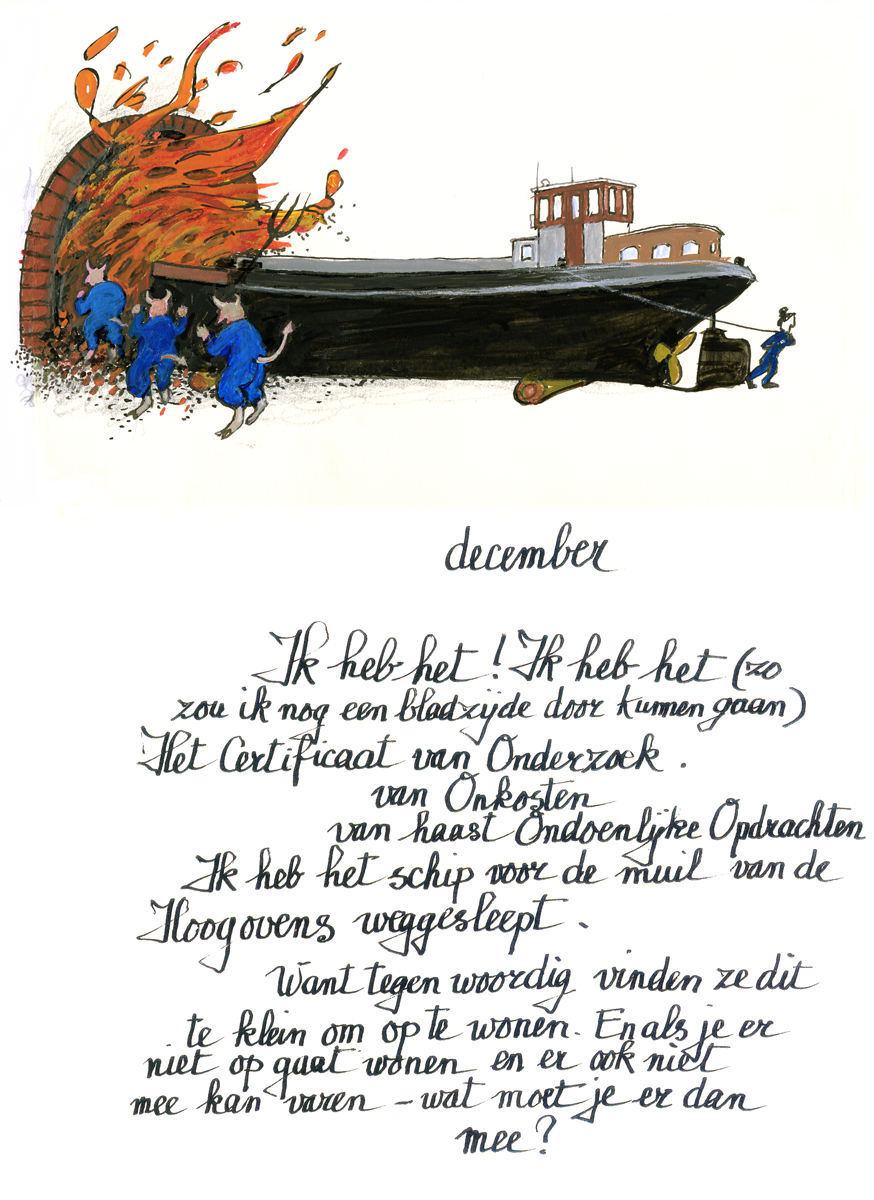 december
Ik heb het! Ik heb het (zo
zou ik nog een bladzijde door kunnen gaan)
Het Certificaat van Onderzoek.
van Onkosten
van haast Ondoenlijke Opdrachten
Ik heb het schip voor de muil van de
Hoogovens weggesleept.
Want tegenwoordig vinden ze dit
te klein om op te wonen. En als je er
niet op gaat wonen en er ook niet
mee kan varen - wat moet je er dan
mee?